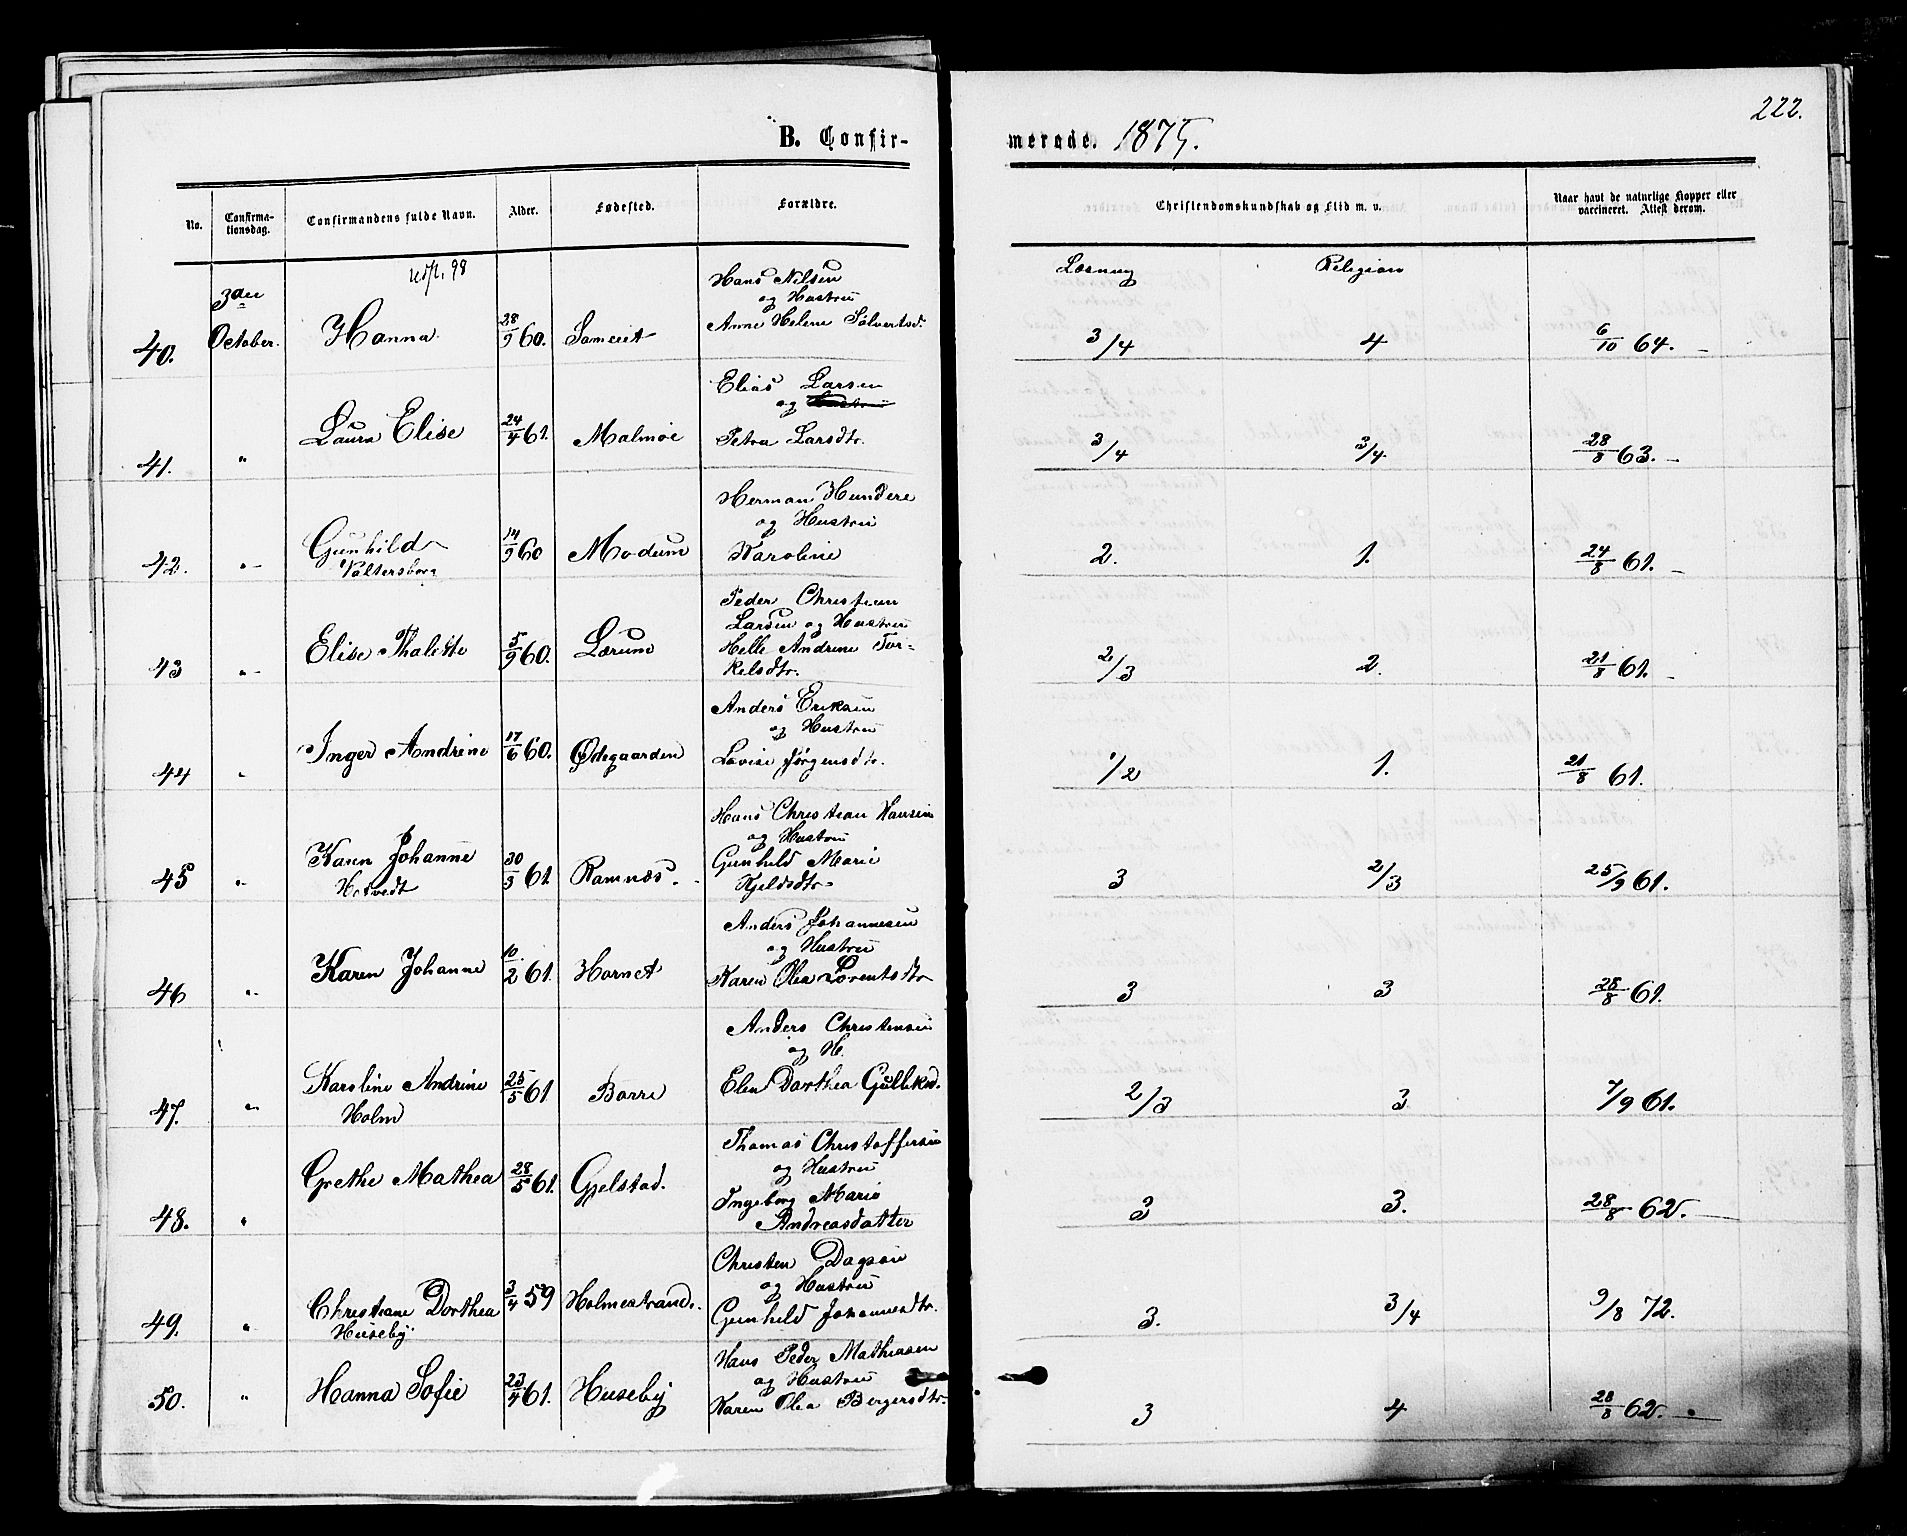 222.
B. Confir-
merede. 1875.
No.
Confirma-
tionsdag.
Confirmandens fulde Navn.
Alder.
Fødested.
Forældre.
Christendomskundskab og Flid m. v.
Naar havt de naturlige Kopper eller
vaccineret. Attest derom.
Læsning Religion
40. 3die October. Hanna 28/9 60.
Hans Nilsen
og Hustru
Anne Helene Sølvertsd.
3/4 4 6/10 64.
41. " Laura Elise 24/4 61. Malmøe
Elias Larsen
og
Petra Larsdtr.
3/4 3/4 28/8 63.
42. " Gunhild 14/9 60 Modum
Valtersborg
Herman Hundere
og Hustru
Karoline
2. 1. 24/8 61.
43 " Elise Thalette 5/9 60. Lærum
Peder Christian
Larsen og Hustru
Helle Andrine Tor-
kelsdtr.
2/3 2. 21/8 61.
44 " Inger Andrine 17/6 60. Ødegaarden
Anders Eriksen
og Hustru
Lovise Jørgensdtr.
1/2 1. 21/8 61.
45 " Karen Johanne 30/3 61. Ramnæs.
Hotvedt
Hans Christian Hansen
og Hustru
Gunhild Marie
Kjeldsdtr
3 2/3 25/9 61.
46 " Karen Johanne 10/2 61. Hornet
Anders Johannesen
og Hustru
Karen Olea Lorentsdtr
3 3 28/8 61.
47. " Karoline Andrine 25/5 61 Borre
Holm
Anders Christensen
og H.
Elen Dorthea Gulliksd.
2/3 3 7/9 61.
48. " Grethe Mathea 28/5 61. Gjelstad.
Thomas Christoffersen
og Hustru
Ingeborg Marie
Andreasdatter
3 3. 28/8 62.
49. " Christiane Dorthea 3/4 59 Holmestrand.
Huseby
Christen Dagsøn
og Hustru
Gunhild Johannesdtr.
3. 3/4 9/8 72.
50. " Hanna Sofie 23/4 61. Huseby
Hans Peder Mathiasen
og Hustru
Karen Olea Bergersdtr.
3 4 28/8 62.